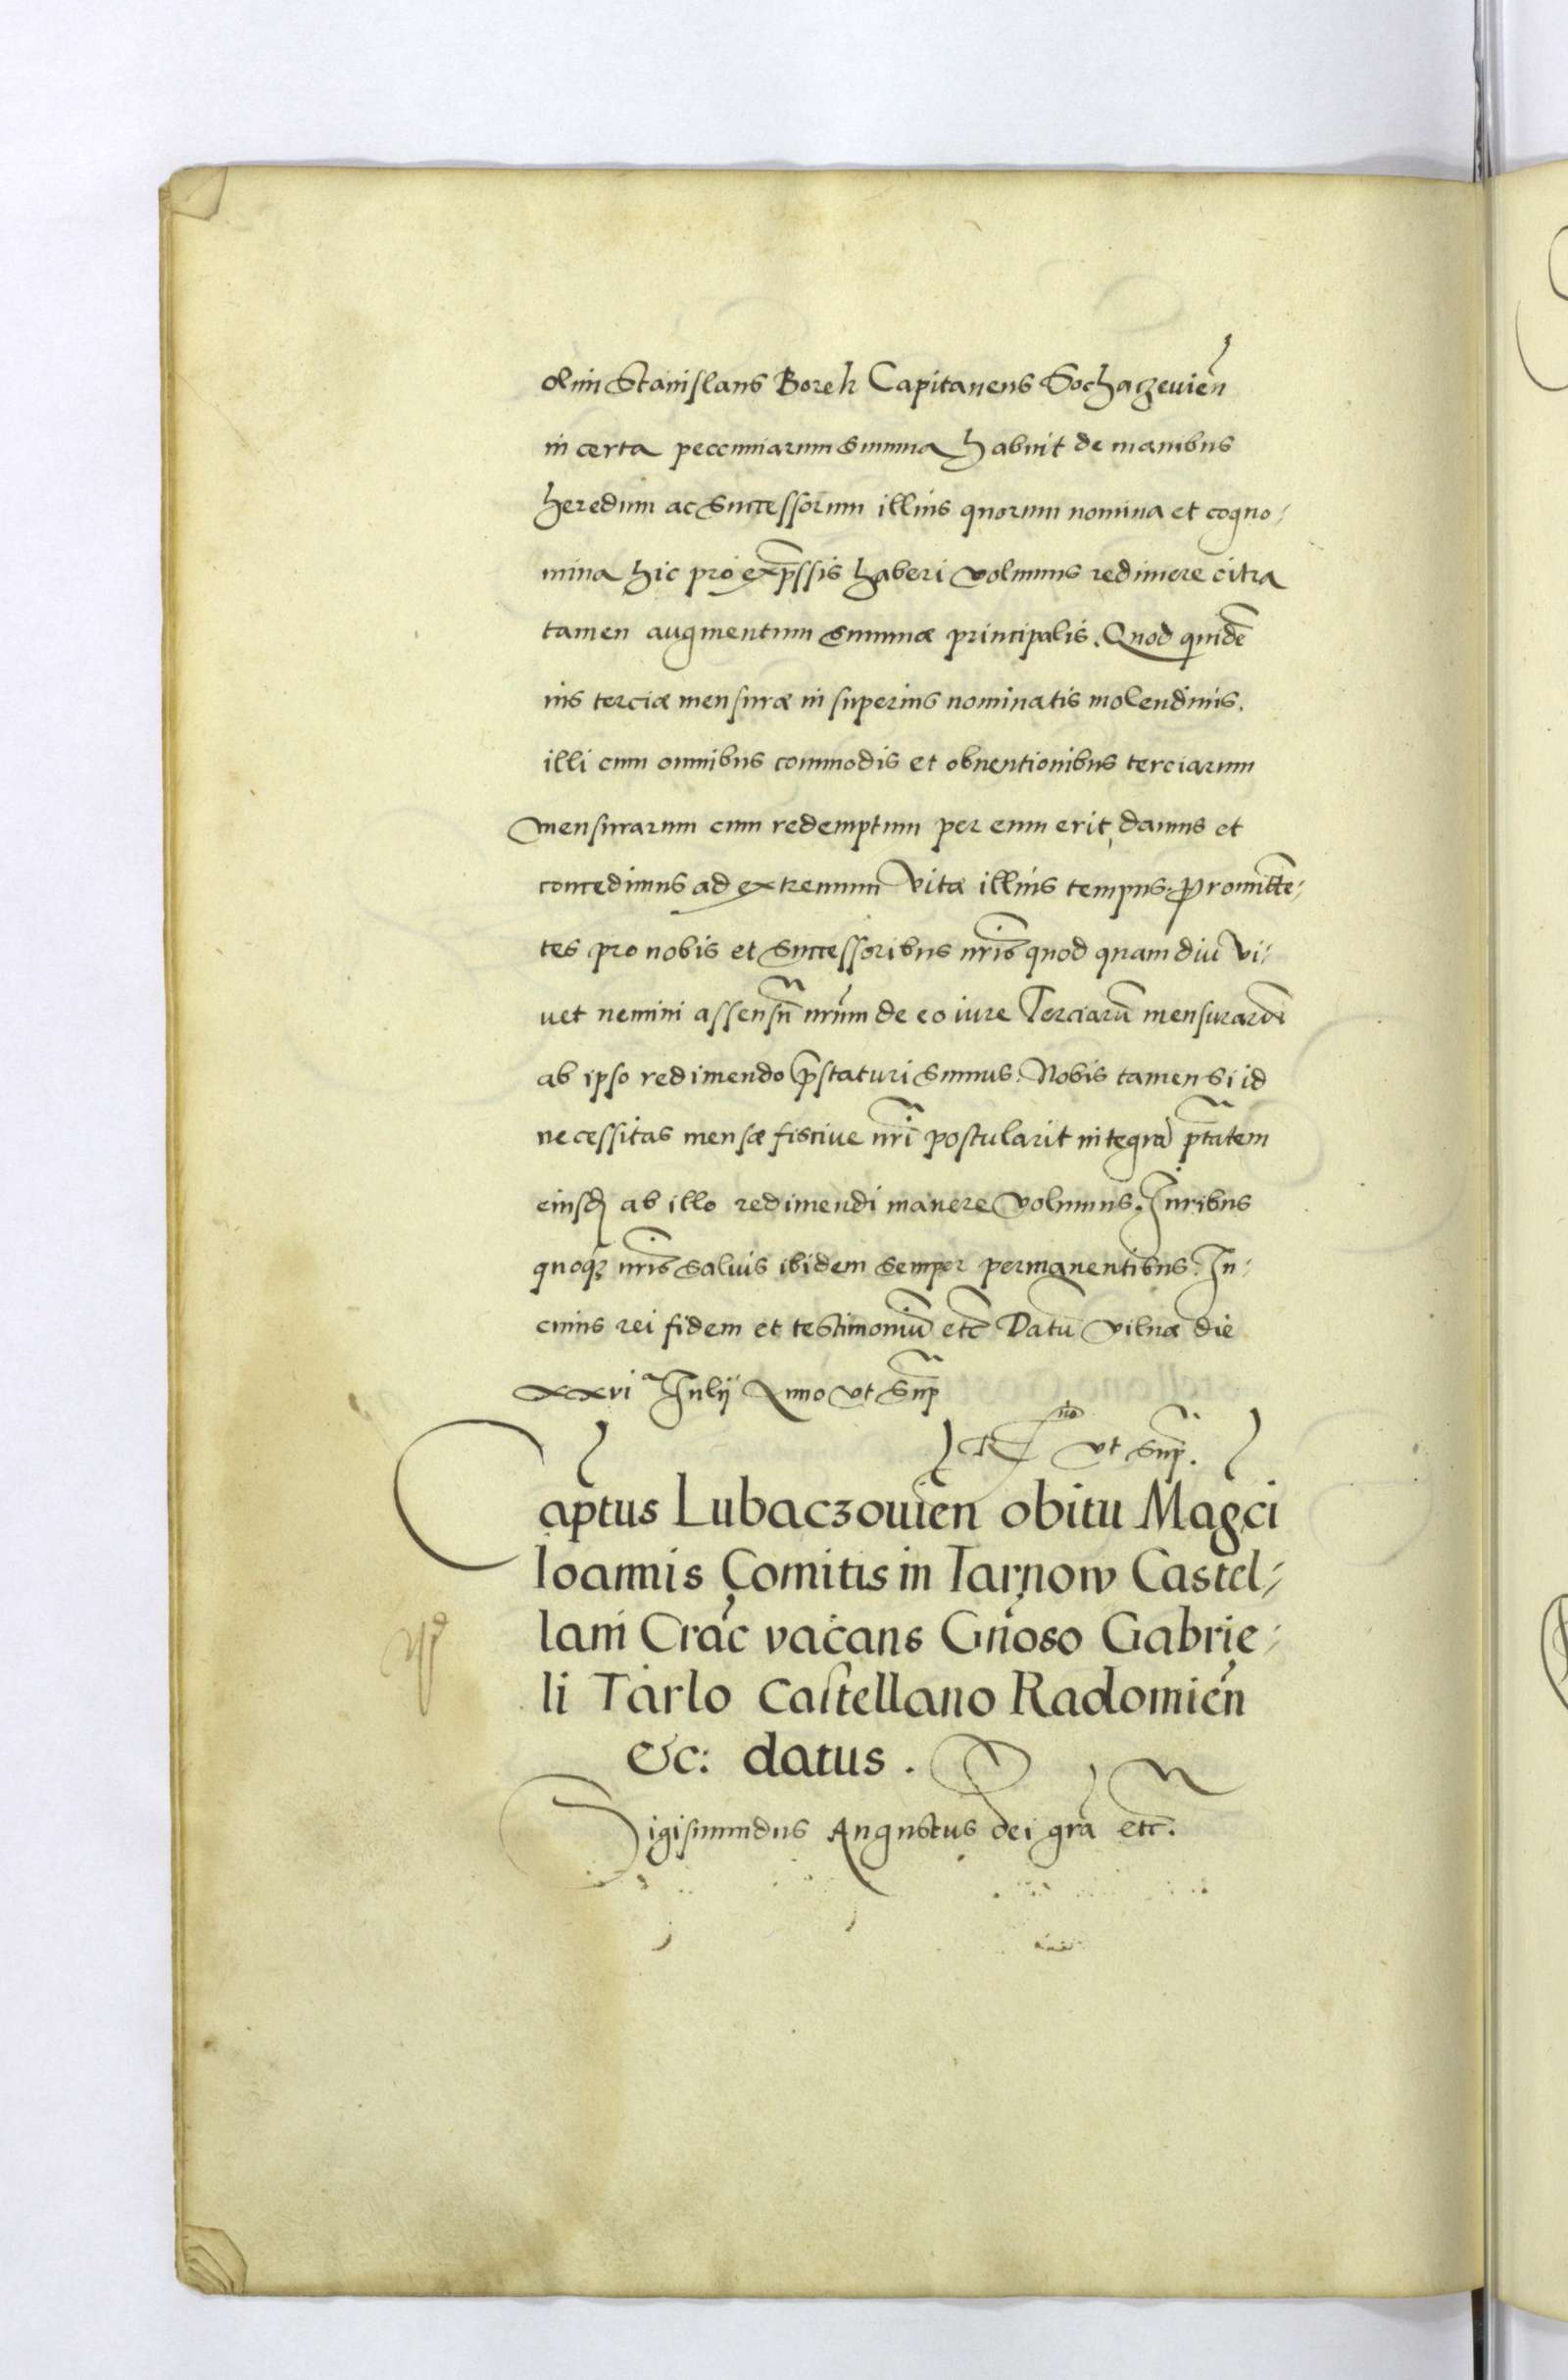 olim Stanislaus Borek Capitaneus Sochaczeuien̄
in certa peccuniarum summa habuit de manibus
heredum ac successorum illius quorum nomina et cogno⸗
mina hic pro exp̄ssis haberi volumus redimere citra
tamen augmentum summæ principalis. Quod quidē
ius terciæ mensuræ in superius nominatis molendinis.
illi cum omnibus commodis et obuentionibus terciarum
mensurarum cum redemptum per eum erit, damus et
concedimus ad extremum vitæ illius tempus. Promittē⸗
tes pro nobis et successoribus nr̄is quod quam diu vi⸗
uet nemini assensū nr̄um de eo iure Terciarū mensurarū
ab ipso redimendo p̄staturi sumus. Nobis tamen si id
necessitas mensæ fisciue nr̄i postularit integrā p̄tatem
eiusd ab illo redimendi manere volumus. Iuribus
quoq; nr̄is saluis ibidem semper permanentibus. In⸗
cuius rei fidem et testimoniū etc̄ Datū Vilnæ die
xxvi a Iulij Anno vt sup̄
Rno vt sup̄.
Captus Lubaczouien̄ obitu Magci
Ioannis Comitis in Tarnow Castel⸗
lani Crac̄ vacans Gn̄oso Gabrie⸗
li Tarlo Castellano Radomien̄
&c: datus.
Sigismundus Augustus dei gr̄a etc̄.